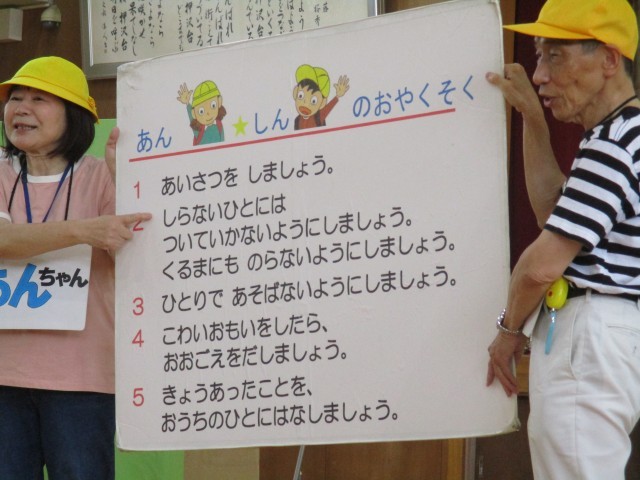 あん★しんのおやくそく
1 あいさつを しましょう。
2 しらないひとには
ついていかないようにしましょう。
くるまにも のらないようにしましょう。
3 ひとりで あそばないようにしましょう。
4 こわいおもいをしたら、
おおごえをだしましょう。
5 きょうあったことを、
おうちのひとにはなしましょう。
あんちゃん